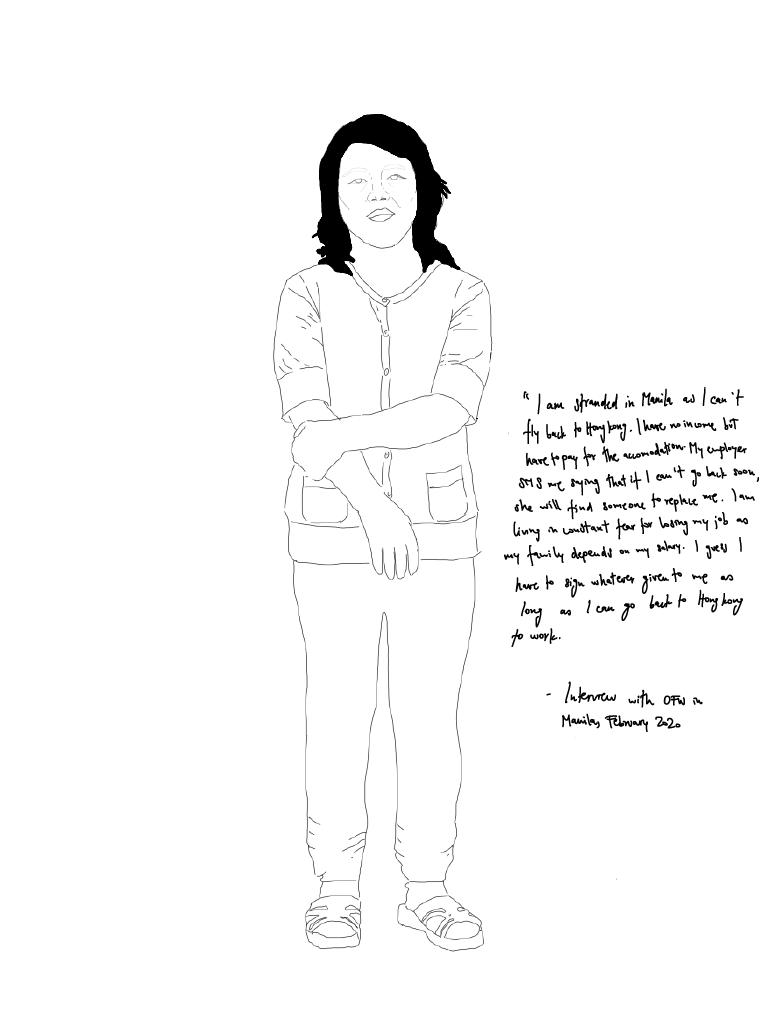 " I am stranded in Manila as I can't
fly back to Hong Kong. I have no income but
have to pay for the accomodation. My employer
SMS me saying that if I can't go back soon,
she will find someone to replace me. I am
living in constant fear for losing my job as
my family depends on my salary. I guess I
have to sign whatever given to me as
long as I can go back to Hong Kong
to work.
- Interview with OFW in
Manila, February 2020